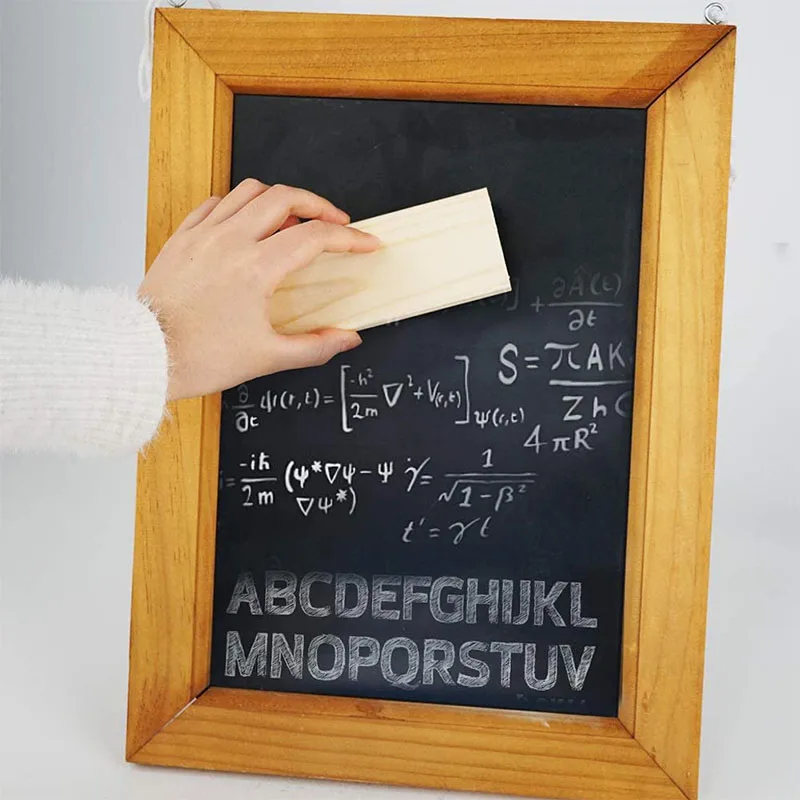 ] + ∂Â(t)/∂t
S = πAK
Zh
∂/∂t ψ(r,t) = [-ħ²/2m ∇² + V(r,t)] ψ(r,t)
4πR²
= -iħ/2m (ψ*∇ψ - ψ∇ψ*)
γ = 1/√1-β²
t' = γt
ABCDEFGHIJKL
MNOPQRSTUV